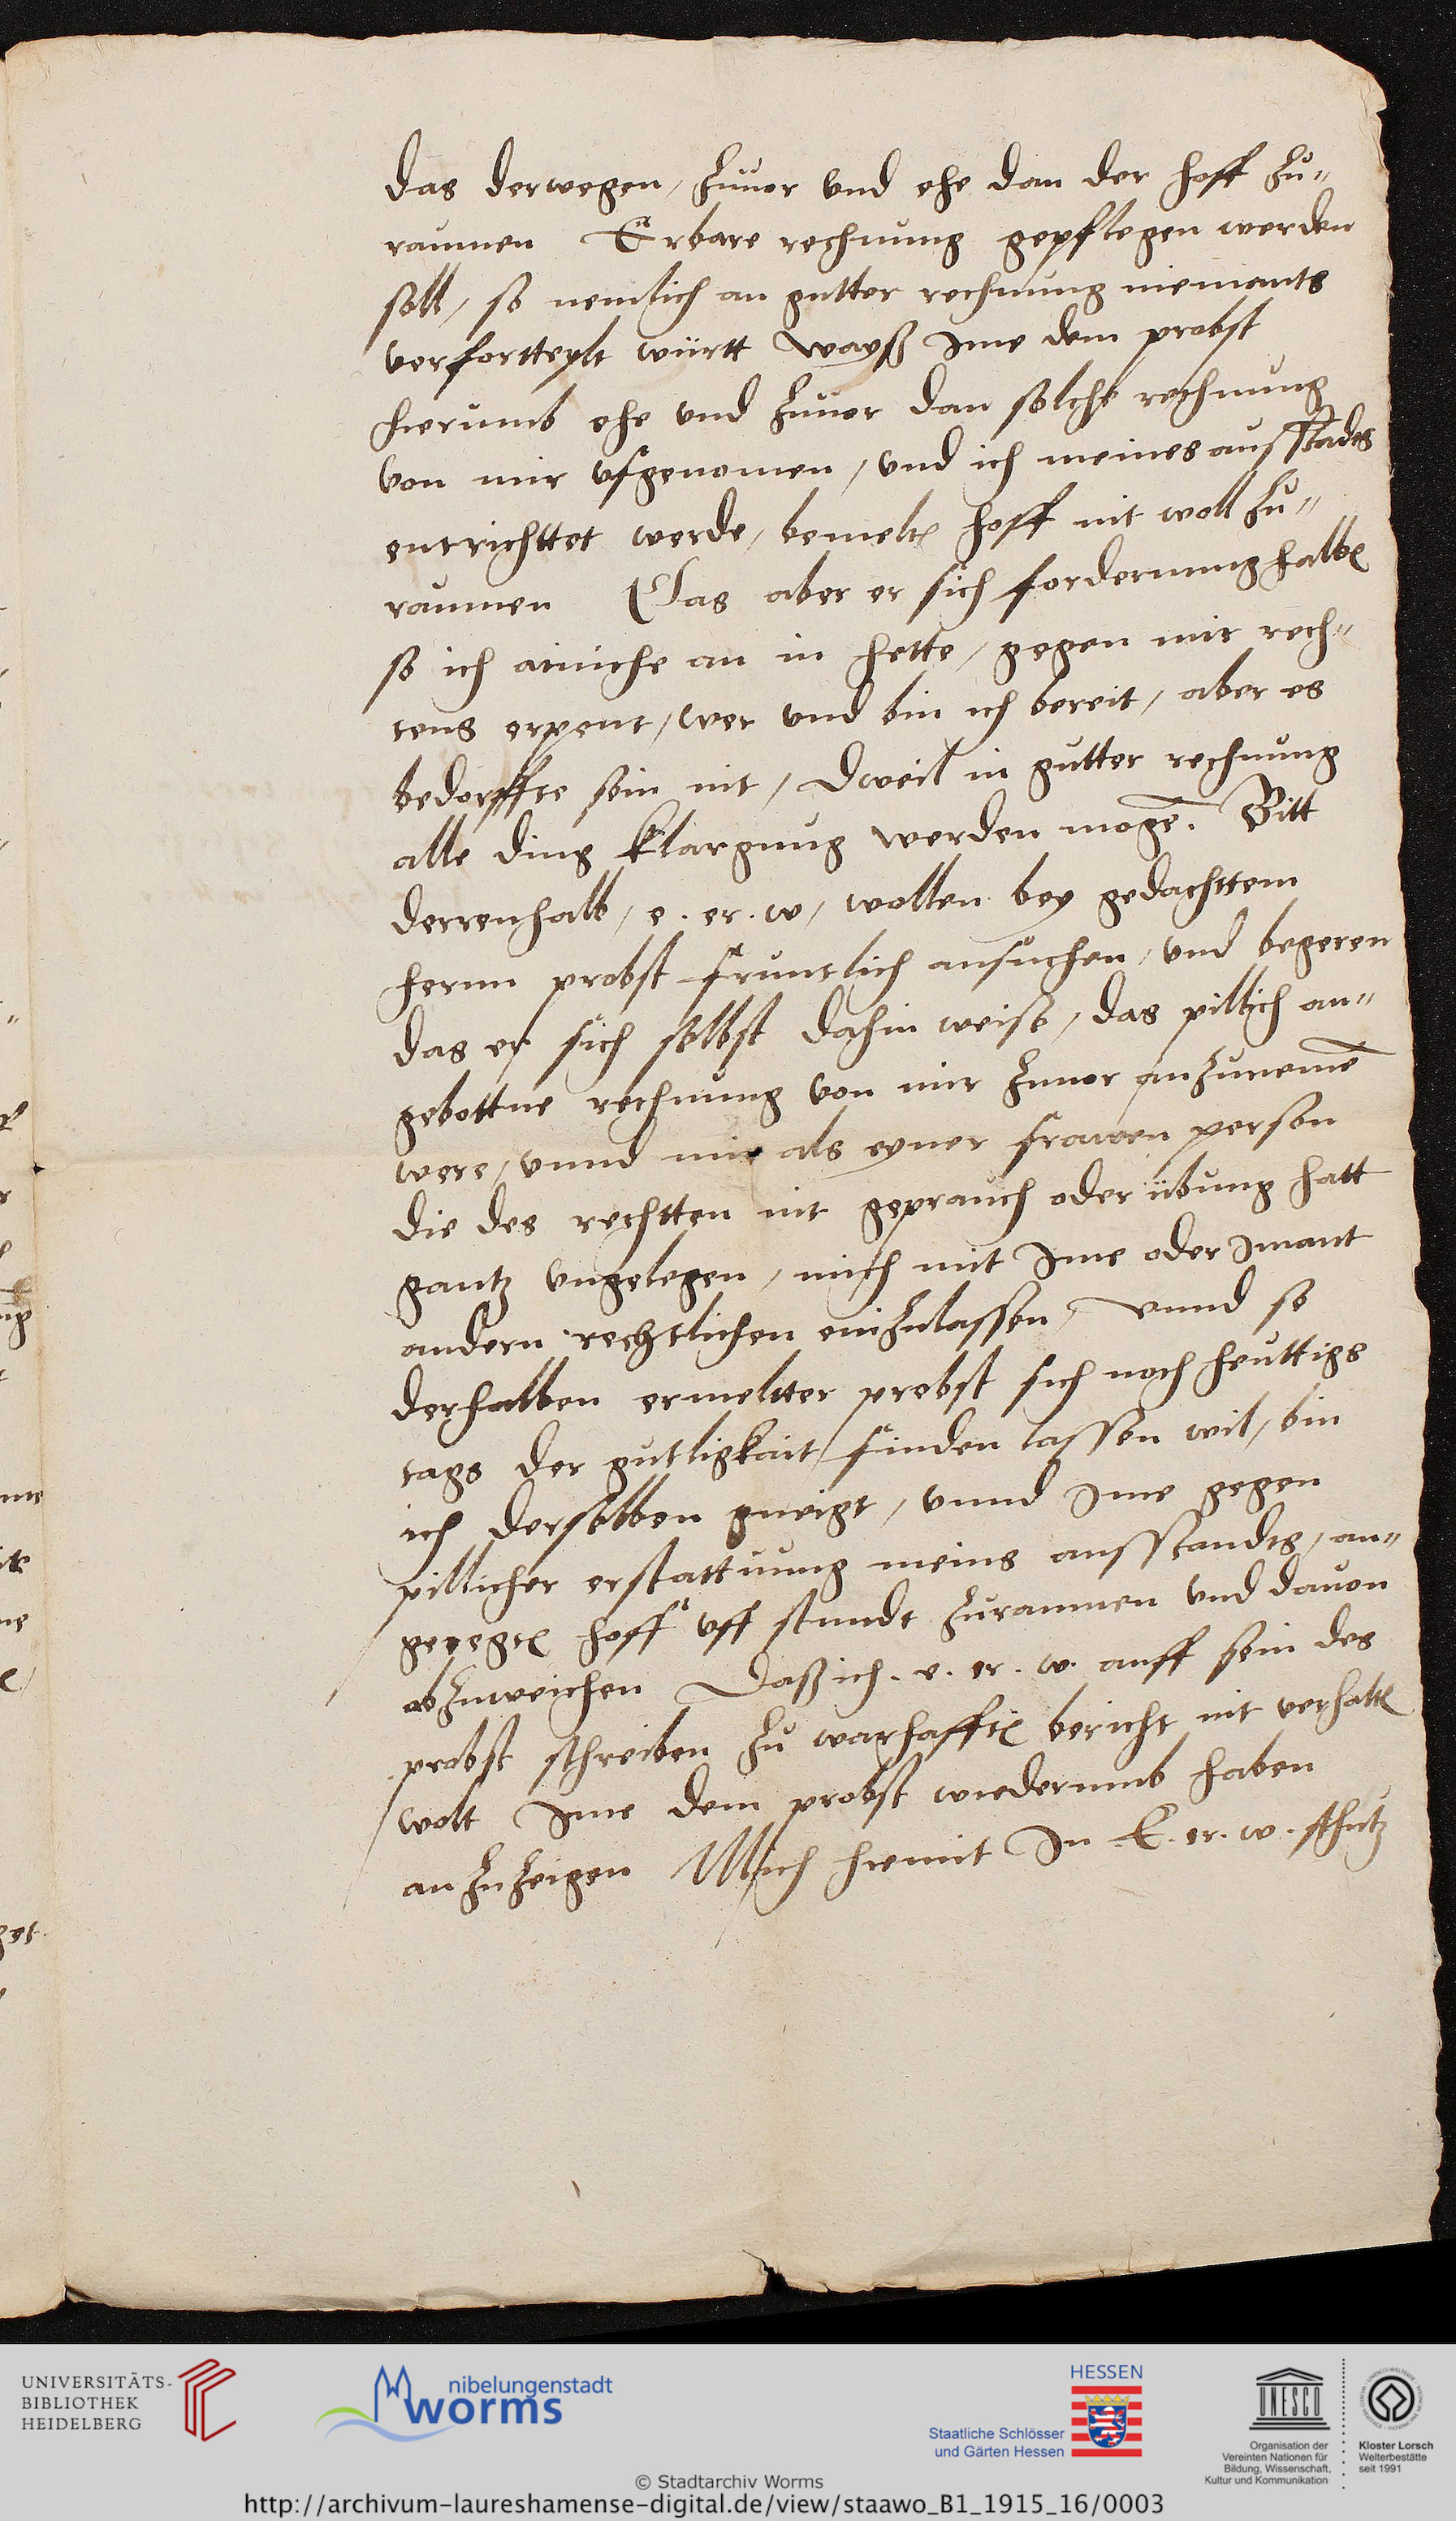 das derwegen, zuuor vnd ehe dan der hoff zu-
raumen Erbare rechnung gepflegen werden
soll, so nemlich an gutter rechnung niemants
verfortteylt württ wayß Ime dem probst
hierumb ehe vnd zuuor dan solche rechnung
von mir vfgenomen, vnd ich meines ausstades
entrichttet werde, bemelt hoff nit woll zu-
raumen Das aber er sich fordernung halb
so ich ainiche an in hette, gegen mir rech-
tens erpeut, wer vnd bin ich bereit, aber es
bedorffte sein nit, dweil in gutter rechnung
alle ding klargnug werden moge. Bitt
derrenhalb, e. er. w, wollen bey gedachttem
hernn probst fruntlich ansuchen, vnd begeren
das er sich selbst dahin weise, das pillich an-
gebottne rechnung von mir zuuor anzuneme
were, vnnd mir als eyner frawen person
die des rechtten nit geprauch oder übung hatt
gantz vngelegen, mich mit Ime oder Imant
andern rechtlichen einzulassen, vnnd so
derhalben ermeltter probst sich noch heuttigs
tags der gutligkait finden lassen wil, bin
ich derselben gneigt, vnnd Ime gegen
pillicher erstattuung meins ausstandts, an-
geregt hoff vff stundt zuraumen vnd dauon
abzuweichen Daß ich. e. er. w. auff sein des
probst schreiben zu warhafft bericht nit verhalt
wolt Ime dem probst wiederumb haben
anzuzeigen Mich hiemit In E. er. w. schutz
UNIVERSITÄTS-
BIBLIOTHEK
HEIDELBERG
nibelungenstadt
worms
HESSEN
Staatliche Schlösser
und Gärten Hessen
UNESCO
Organisation der
Vereinten Nationen für
Bildung, Wissenschaft,
Kultur und Kommunikation
Kloster Lorsch
Welterbestätte
seit 1991
© Stadtarchiv Worms
http://archivum-laureshamense-digital.de/view/staawo_B1_1915_16/0003